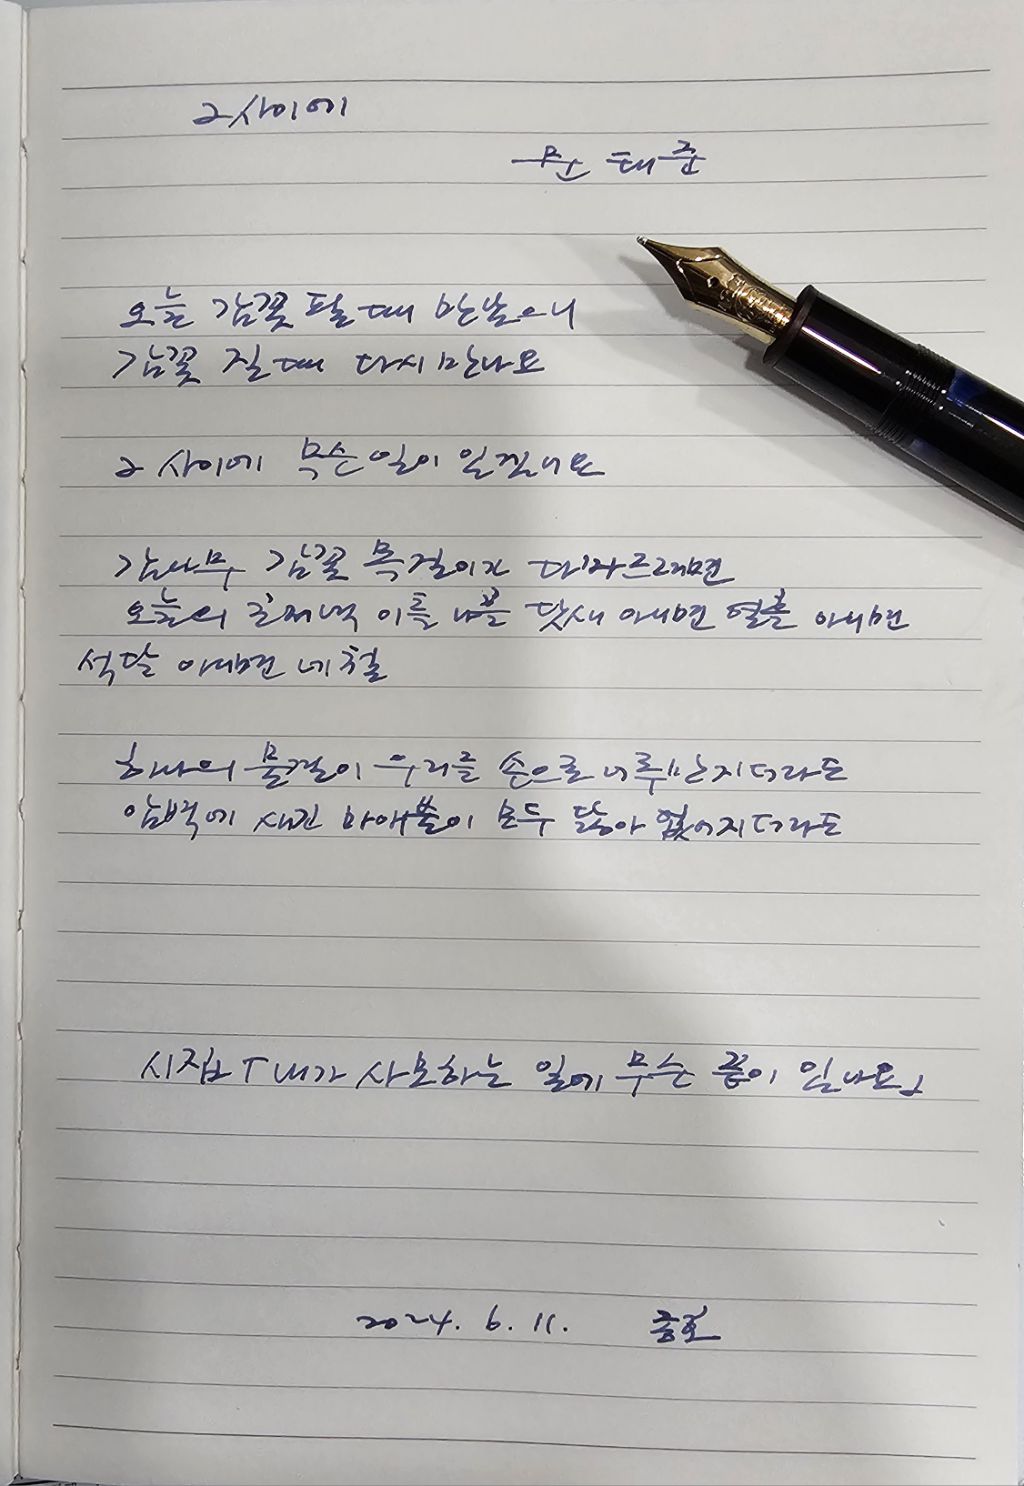 그 사이에
문태준
오늘 감꽃 필 때 만났으니
감꽃 질 때 다시 만나요
그 사이에 무슨 일이 있겠나요
감나무 감꽃 목걸이가 다 마르려면
오늘의 초저녁 이틀 나흘 닷새 아니면 열흘 아니면
석달 아니면 네 철
하나의 물결이 우리를 손으로 어루만지더라도
암벽에 새긴 마애불이 모두 닳아 없어지더라도
시집 『내가 사모하는 일에 무슨 끝이 있나요』
2024. 6. 11.